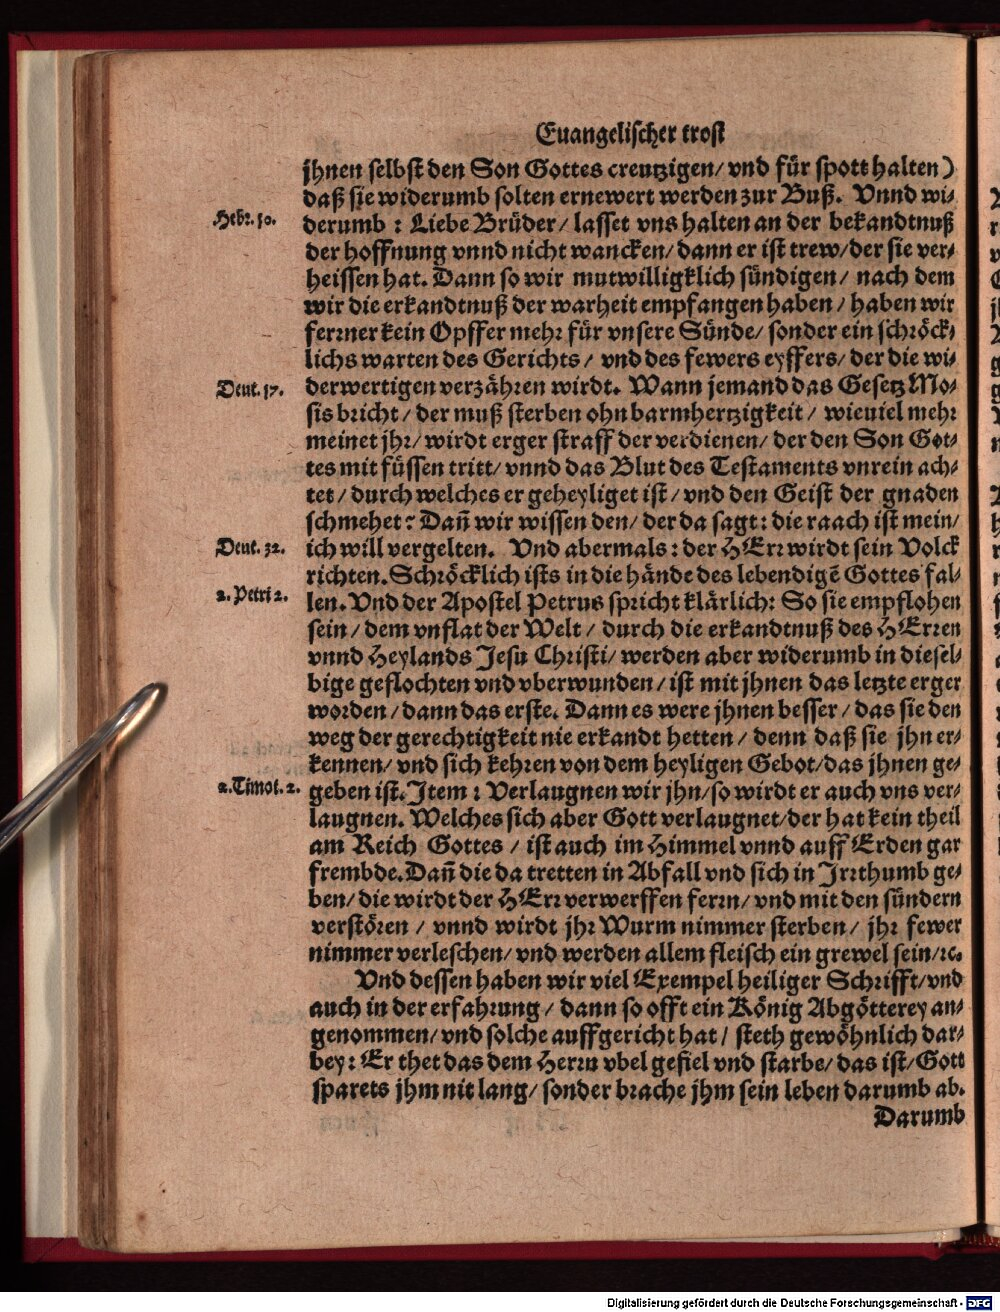 Euangelischer trost
jhnen selbst den Son Gottes creutzigen/ vnd für spott halten)
daß sie widerumb solten ernewert werden zur Buß. Vnnd wi-
Hebr. 10.
derumb : Liebe Brüder/ lasset vns halten an der bekandtnuß
der hoffnung vnnd nicht wancken/ dann er ist trew/ der sie ver-
heissen hat. Dann so wir mutwilligklich sündigen/ nach dem
wir die erkandtnuß der warheit empfangen haben/ haben wir
ferrner kein Opffer mehr für vnsere Sünde/ sonder ein schröck-
lichs warten des Gerichts/ vnd des fewers eyffers/ der die wi-
Deut. 17.
derwertigen verzähren wirdt. Wann jemand das Gesetz Mo-
sis bricht/ der muß sterben ohn barmhertzigkeit/ wieuiel mehr
meinet jhr/ wirdt erger straff der verdienen/ der den Son Got-
tes mit füssen tritt/ vnnd das Blut des Testaments vnrein ach-
tet/ durch welches er geheyliget ist/ vnd den Geist der gnaden
schmehet? Dañ wir wissen den/ der da sagt: die raach ist mein/
Deut. 32.
ich will vergelten. Vnd abermals: der HErr wirdt sein Volck
richten. Schröcklich ists in die hände des lebendigẽ Gottes fal-
2. Petri 2.
len. Vnd der Apostel Petrus spricht klärlich: So sie empflohen
sein/ dem vnflat der Welt/ durch die erkandtnuß des HErren
vnnd Heylands Jesu Christi/ werden aber widerumb in diesel-
bige geflochten vnd vberwunden/ ist mit jhnen das letzte erger
worden/ dann das erste. Dann es were jhnen besser/ das sie den
weg der gerechtigkeit nie erkandt hetten/ denn daß sie jhn er-
kennen/ vnd sich kehren von dem heyligen Gebot/ das jhnen ge-
2. Timot. 2.
geben ist. Jtem : Verlaugnen wir jhn/ so wirdt er auch vns ver-
laugnen. Welches sich aber Gott verlaugnet/ der hat kein theil
am Reich Gottes/ ist auch im Himmel vnnd auff Erden gar
frembde. Dañ die da tretten in Abfall vnd sich in Jrrthumb ge-
ben/ die wirdt der HErr verwerffen ferrn/ vnd mit den sündern
verstören/ vnnd wirdt jhr Wurm nimmer sterben/ jhr fewer
nimmer verleschen/ vnd werden allem fleisch ein grewel sein/ ꝛc.
Vnd dessen haben wir viel Exempel heiliger Schrifft/ vnd
auch in der erfahrung/ dann so offt ein König Abgötterey an-
genommen/ vnd solche auffgericht hat/ steth gewöhnlich dar-
bey: Er thet das dem Herrn vbel gefiel vnd starbe/ das ist/ Gott
sparets jhm nit lang/ sonder brache jhm sein leben darumb ab.
Darumb
Digitalisierung gefördert durch die Deutsche Forschungsgemeinschaft - DFG